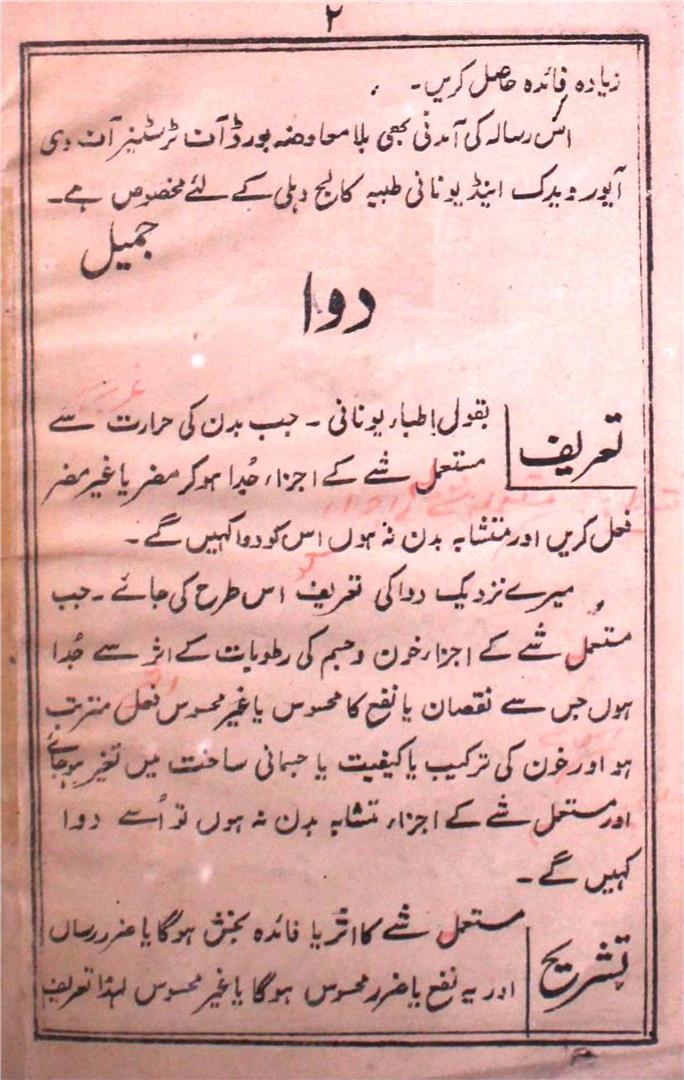 ۲
زیادہ فائدہ حاصل کریں۔
اس رسالہ کی آمدنی بھی بلا معاوضہ بورڈ آف ٹرسٹیز آف دی
آیورویدک اینڈ یونانی طبیہ کالج دہلی کے لئے مخصوص ہے۔
جمیل
دوا
تعریف
بقول اطباء یونانی۔ جب بدن کی حرارت سے
مستعمل شے کے اجزاء جُدا ہوکر مضر یا غیر مضر
فعل کریں اور متشابہ بدن نہ ہوں اس کو دوا کہیں گے۔
میرے نزدیک دوا کی تعریف اس طرح کی جائے۔ جب
مستعمل شے کے اجزاء خون و جسم کی رطوبات کے اثر سے جُدا
ہوں جس سے نقصان یا نفع کا محسوس یا غیر محسوس فعل مترتب
ہو اور خون کی ترکیب یا کیفیت یا جسمانی ساخت میں تغیر ہوجائے
اور مستعمل شے کے اجزاء متشابہ بدن نہ ہوں تو اُسے دوا
کہیں گے۔
تشریح
مستعمل شے کا اثر یا فائدہ بخش ہوگا یا ضرر رساں
اور یہ نفع یا ضرر محسوس ہوگا یا غیر محسوس لہذا تعریف